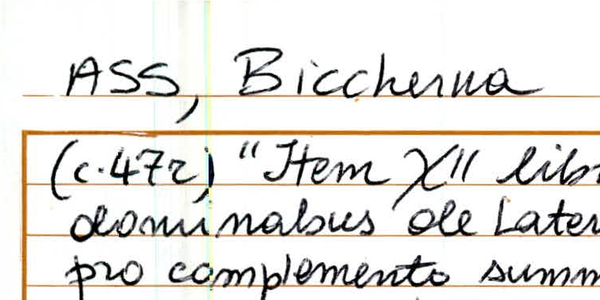 ASS, Biccherna
(c.47r) "Item XII lib
dominabus de Later
pro complemento summ